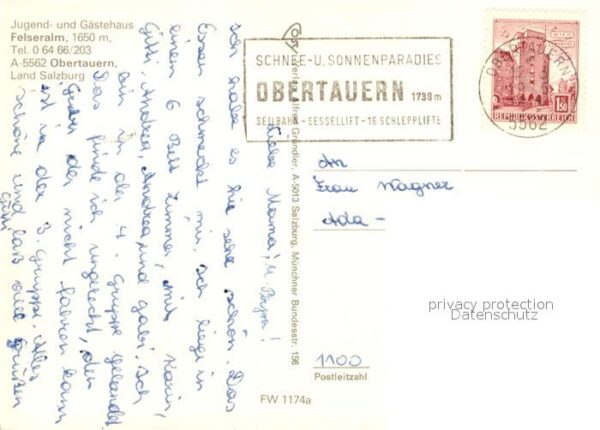 Jugend- und Gästehaus
Felseralm, 1650 m,
Tel. 0 64 66/203
A-5562 Obertauern,
Land Salzburg
SCHNEE-U. SONNENPARADIES
OBERTAUERN 1738 m
SEILBAHN - SESSELLIFT - 16 SCHLEPPLIFTE
OBERTAUERN
5562
WIEN
1.50
REPUBLIK ÖSTERREICH
Verlag Alfred Gründler, A-5013 Salzburg, Münchner Bundesstr. 156
Liebe Mama! u. Papa!
Ich habe es hier sehr schön. Das
Essen schmeckt mir. Ich liege in
einem 6 Bett Zimmer, mit Karin,
Gitti, Andrea, Andrea und Gabi. Ich
bin in der 4. Gruppe gelandet
Das finde ich ungerecht, den
der nicht fahren kann
ist in der 3. Gruppe. Alles
schöne und laß alle grüßen
Gitti
An
Frau Wagner
Ada -
1100
Postleitzahl
FW 1174a
privacy protection
Datenschutz